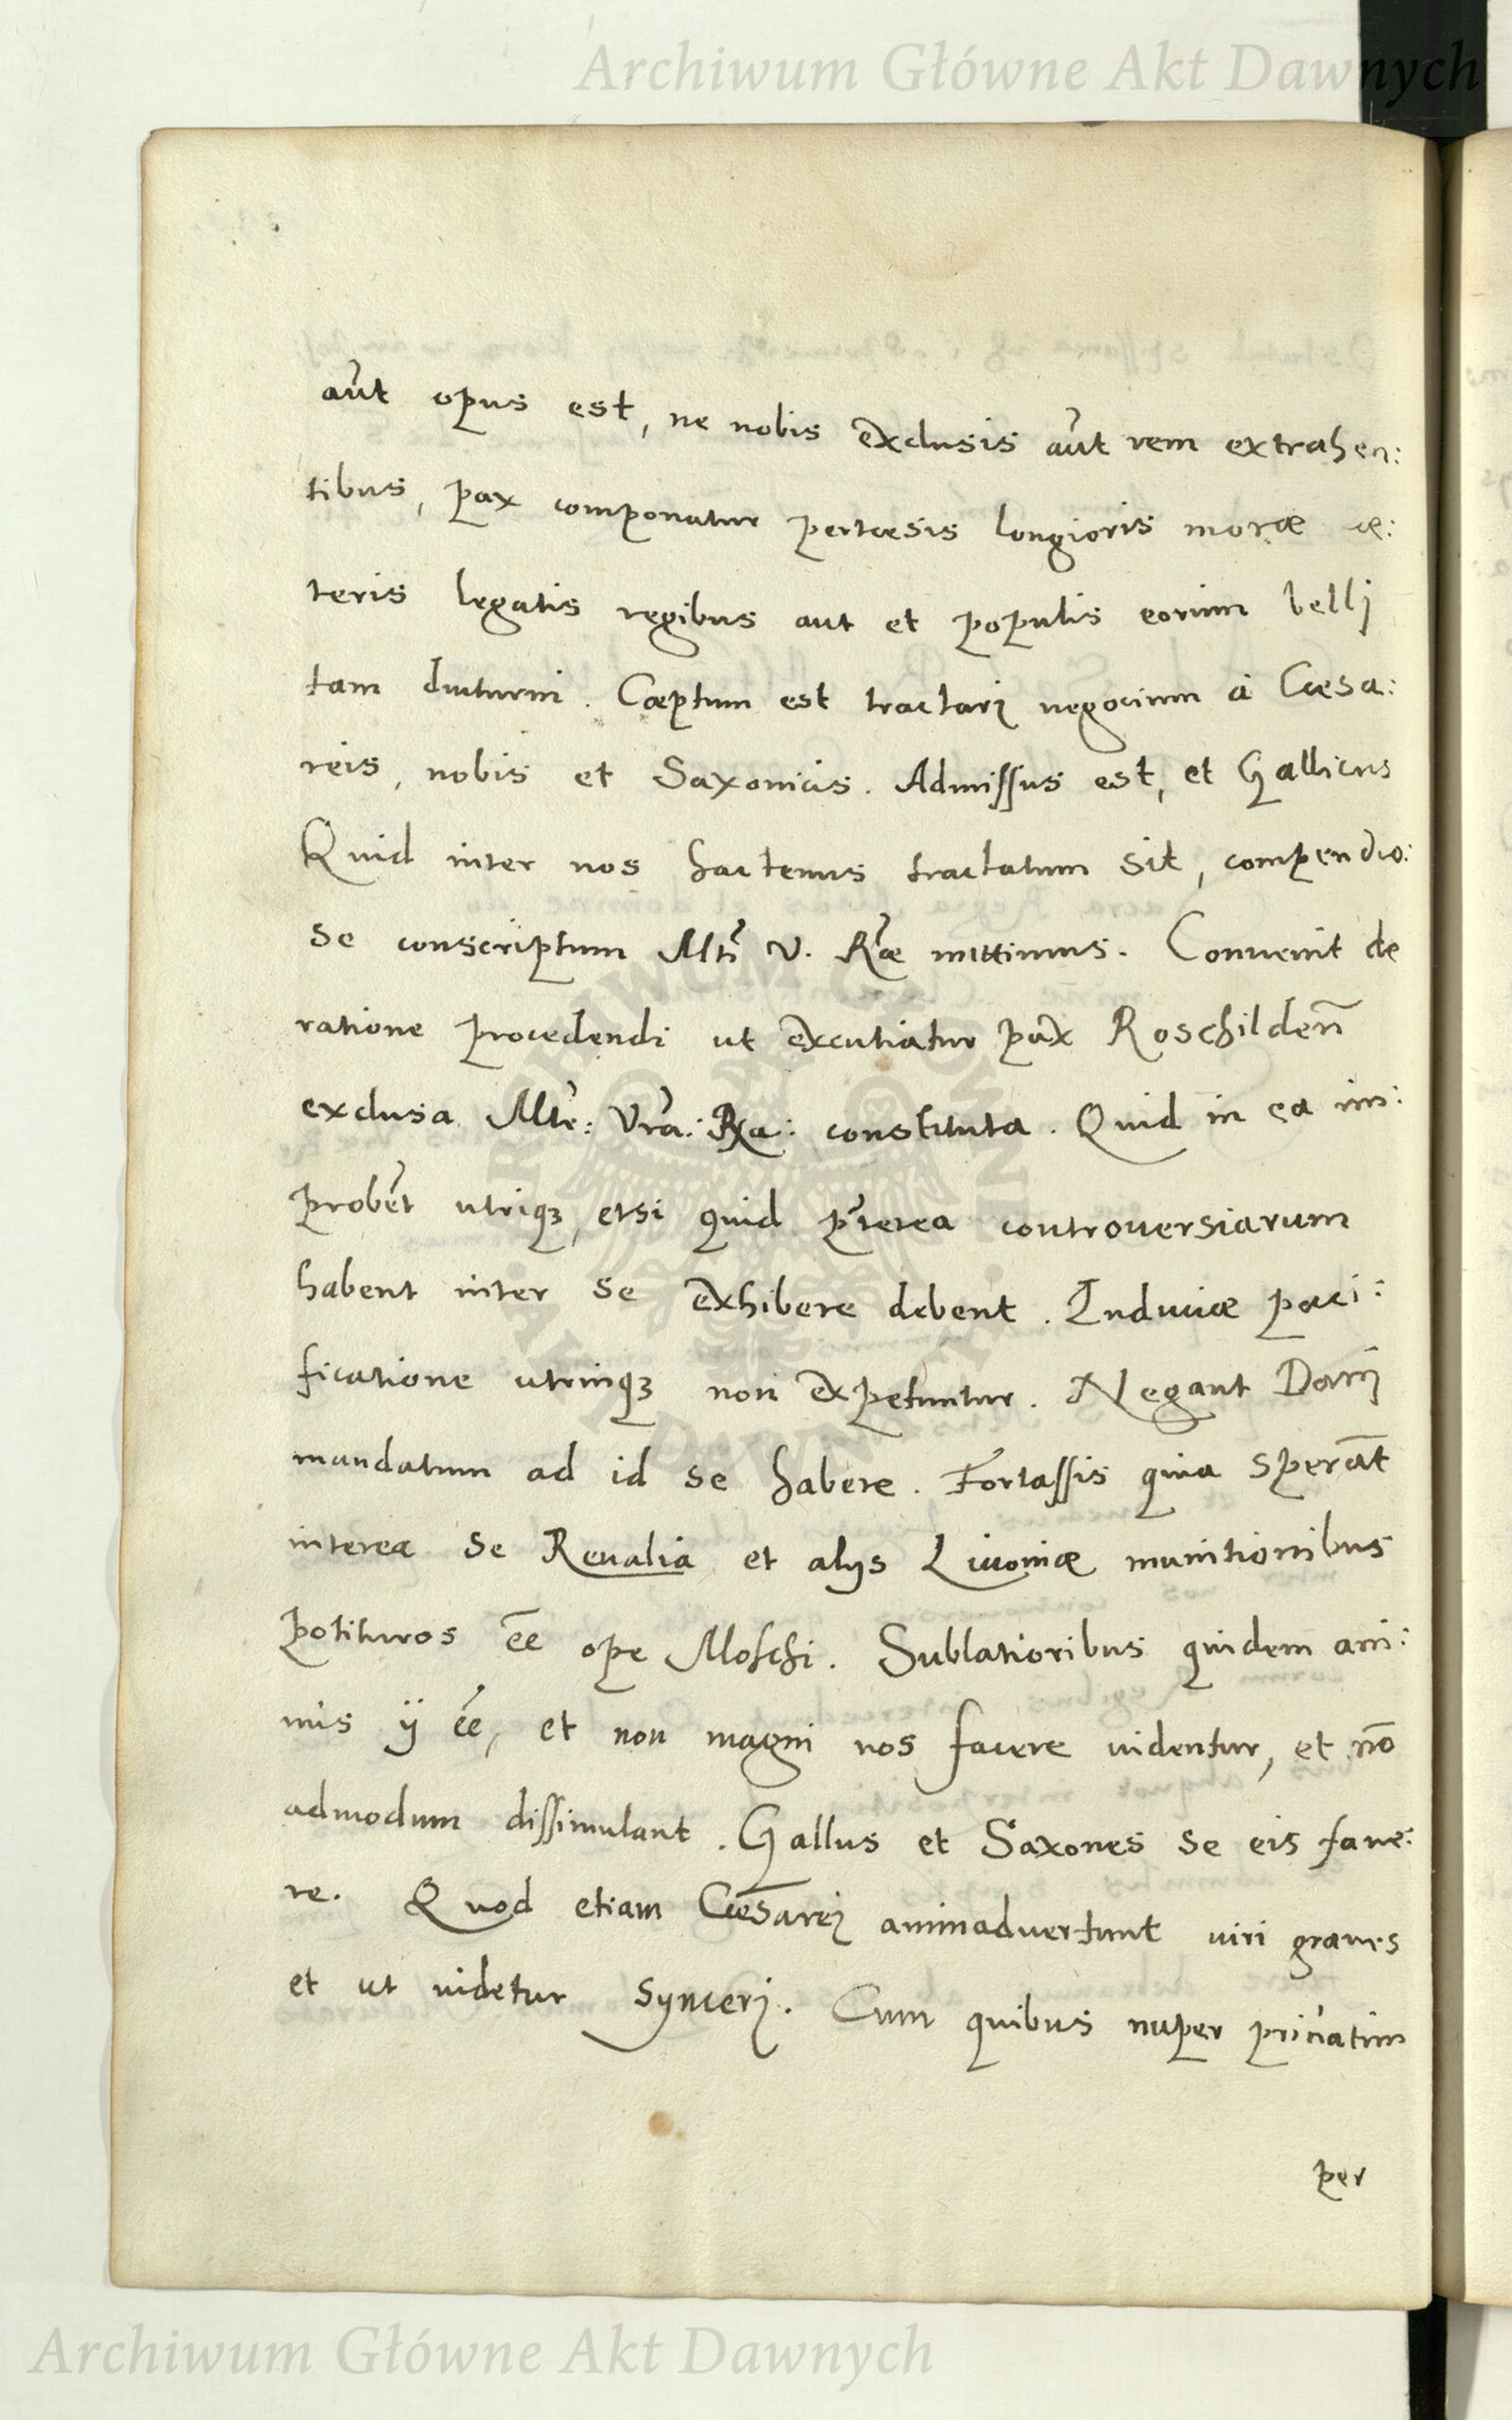 Archiwum Główne Akt Dawnych
aūt opus est, ne nobis exclusis aūt rem extrahen:
tibus, pax componatur pertæsis longioris moræ cæ:
teris legatis regibus aut et populis eorum bellj
tam diuturni. Cæptum est tractarj negocium à Cæsa:
reis, nobis et Saxonicis. Admissus est, et Gallicus
Quid inter nos hactenus tractatum sit, compendio:
se conscriptum Mtī V. Rāe mittimus. Conuenit de
ratione procedendi ut excutiatur pax Roschildeñ
exclusa Mte: Vrā: Rā: constituta. Quid in ea im:
probēt utriqȝ, etsi quid p̄terea controuersiarum
habent inter se exhibere debent. Induciæ paci:
ficatione utrinqȝ non expetuntur. Negant Danj
mandatum ad id se habere. Fortassis quia sperāt
interea se Reualia et alijs Liuoniæ munitionibus
potituros ēe ope Moschi. Sublatioribus quidem ani:
mis ij ēe, et non magni nos facere uidentur, et nō
admodum dissimulant. Gallus et Saxones se eis faue:
re. Quod etiam Cæsarej animaduertunt uiri graues
et ut uidetur syncerj. Cum quibus nuper priuatim
per
Archiwum Główne Akt Dawnych